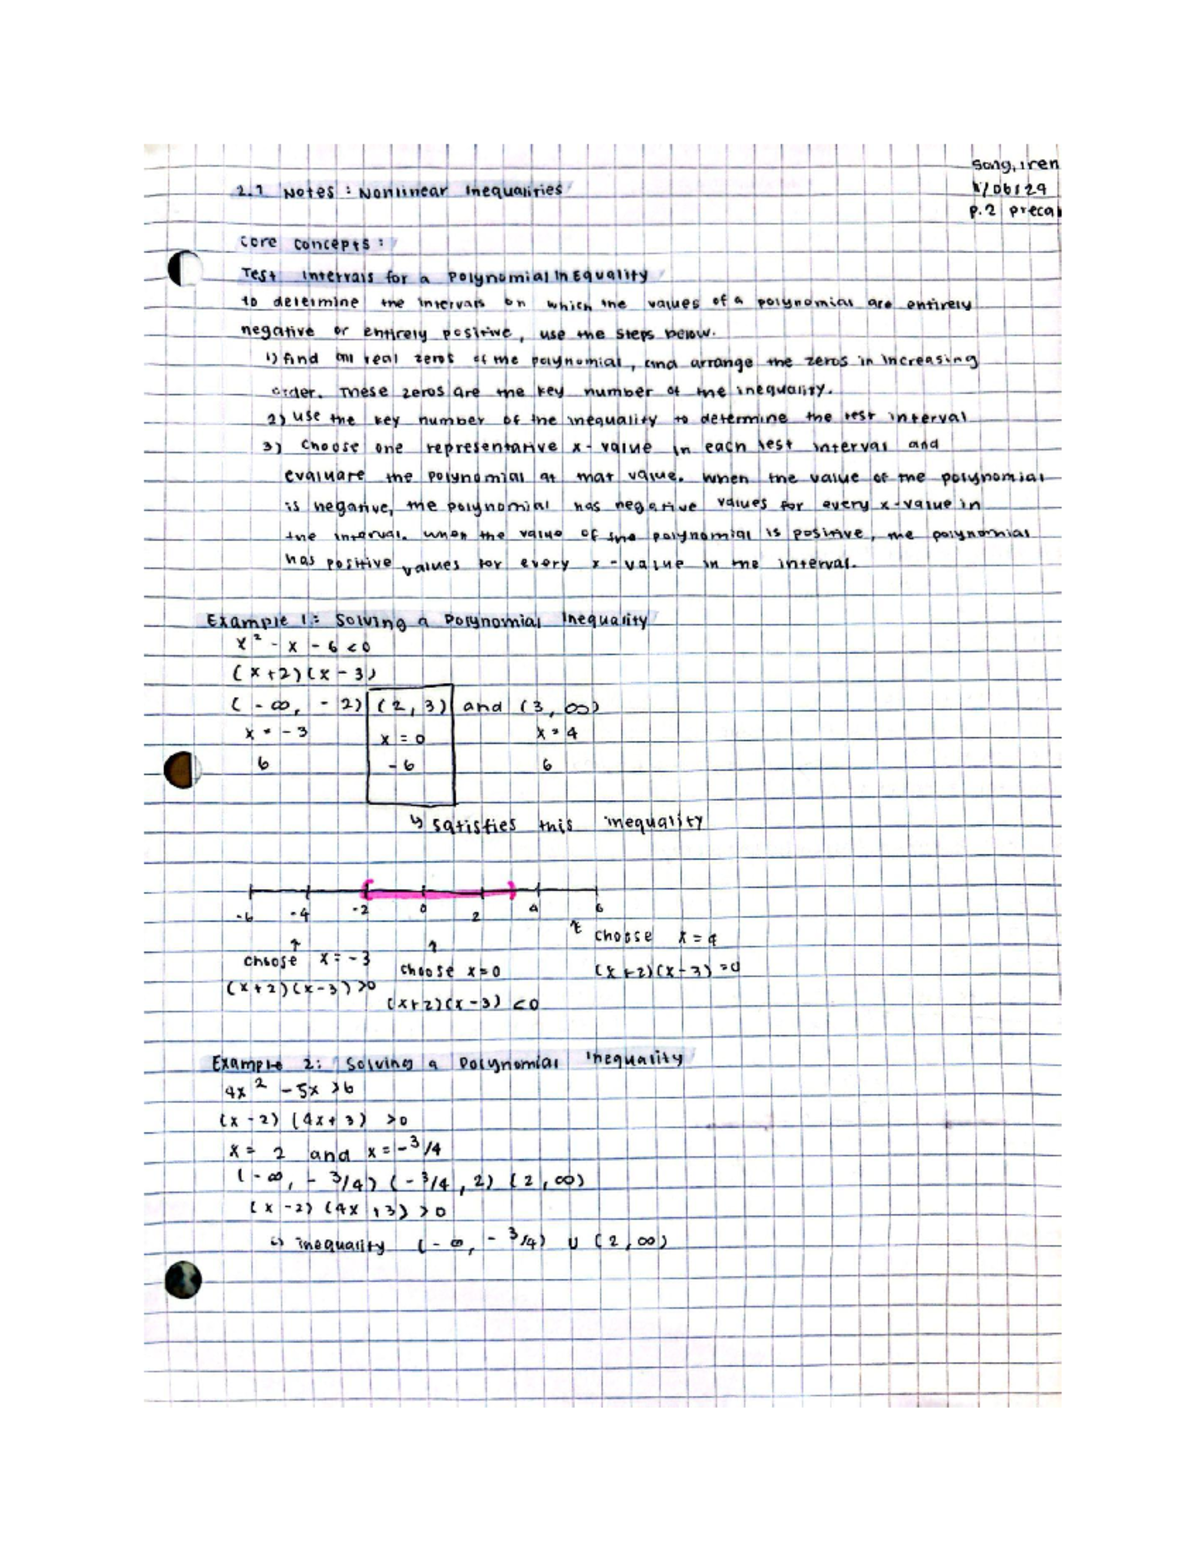 Song, iren
p.2 precal
2.7 Notes: Nonlinear Inequalities
Core concepts:
Test Intervals for a Polynomial Inequality
to determine the intervals on which the values of a polynomial are entirely
negative or entirely positive, use the steps below.
1) find all real zeros of the polynomial, and arrange the zeros in increasing
order. These zeros are the key number of the inequality.
2) use the key number of the inequality to determine the test interval
3) choose one representative x-value in each test interval and
evaluate the polynomial at that value. When the value of the polynomial
is negative, the polynomial has negative values for every x-value in
the interval. When the value of the polynomial is positive, the polynomial
has positive values for every x-value in the interval.
Example 1: Solving a Polynomial Inequality
x² - x - 6 < 0
(x+2)(x-3)
(-∞, -2) (2,3) and (3,∞)
x = -3 x = 0 x = 4
6 -6 6
↳ satisfies this inequality
-6 -4 -2 0 2 4 6
↑ ↑ ↑ choose x = 4
choose x = -3 choose x=0 (x+2)(x-3)=0
(x+2)(x-3)>0
(x+2)(x-3) <0
Example 2: Solving a Polynomial Inequality
4x² - 5x > 6
(x-2)(4x+3) >0
x = 2 and x = -3/4
(-∞, -3/4) (-3/4, 2) (2,∞)
(x-2)(4x+3) >0
↳ inequality (-∞, -3/4) ∪ (2,∞)